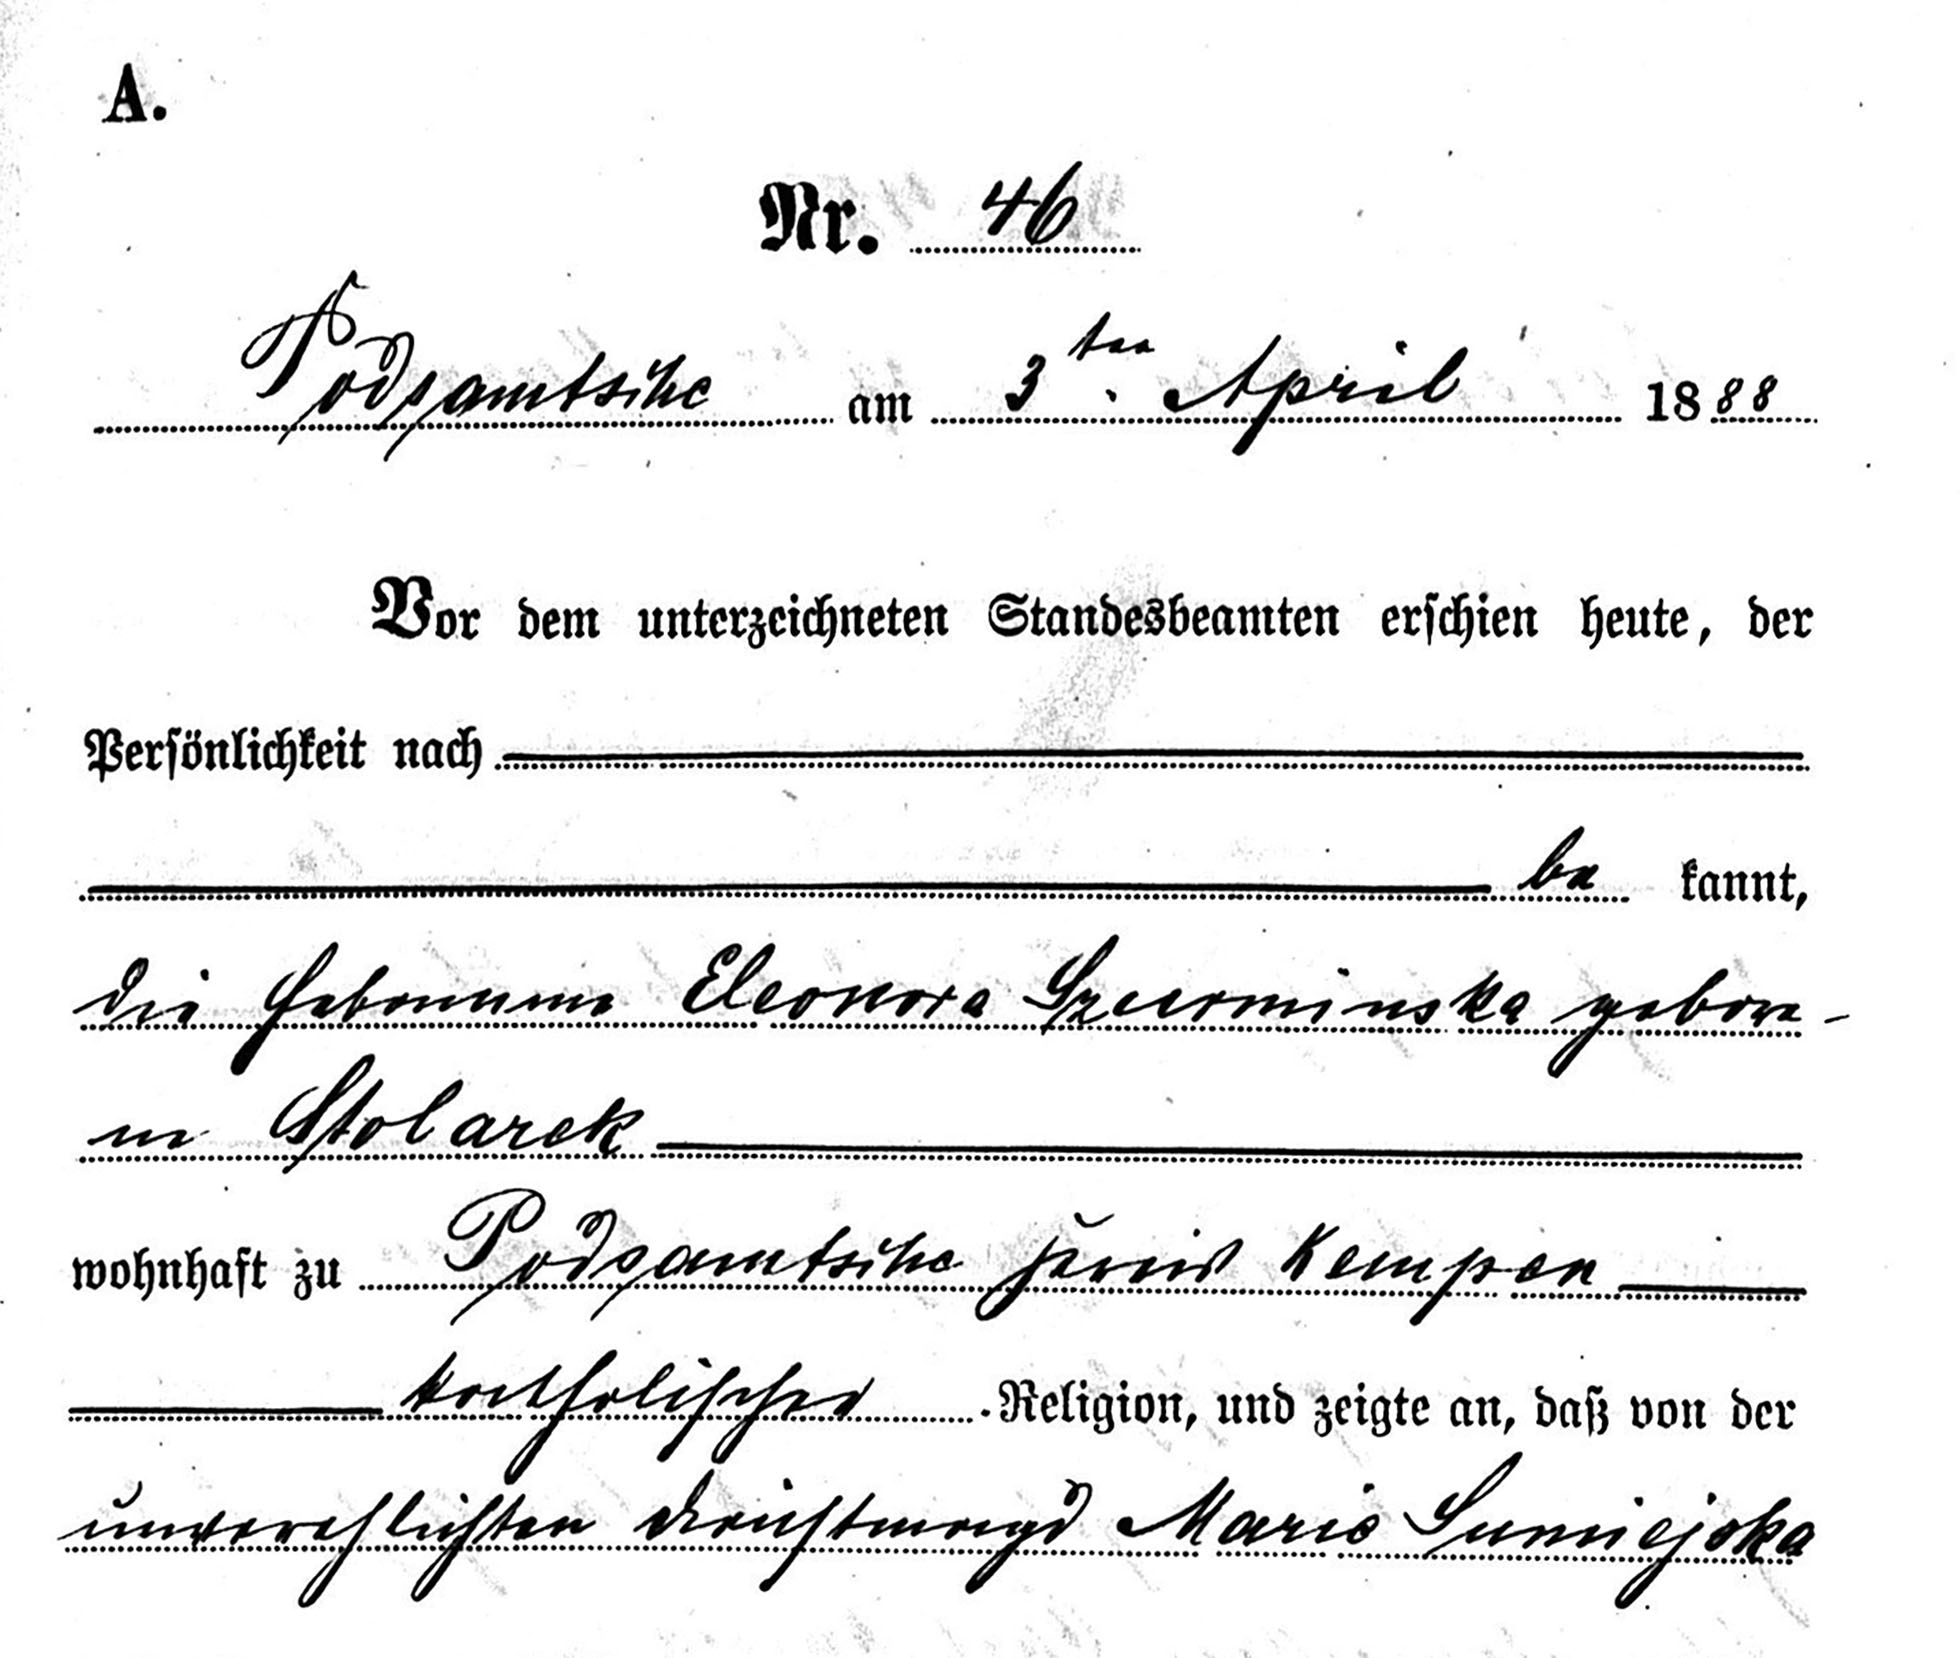 A.
Nr. 46
Podsamtsche am 3ten. April 1888
Vor dem unterzeichneten Standesbeamten erschien heute, der
Persönlichkeit nach
be kannt,
die Hebamme Eleonora Szurminska gebore-
ne Stolarek
wohnhaft zu Podsamtsche Kreis Kempen
katholischer Religion, und zeigte an, daß von der
unverehlichten Dienstmagd Marie